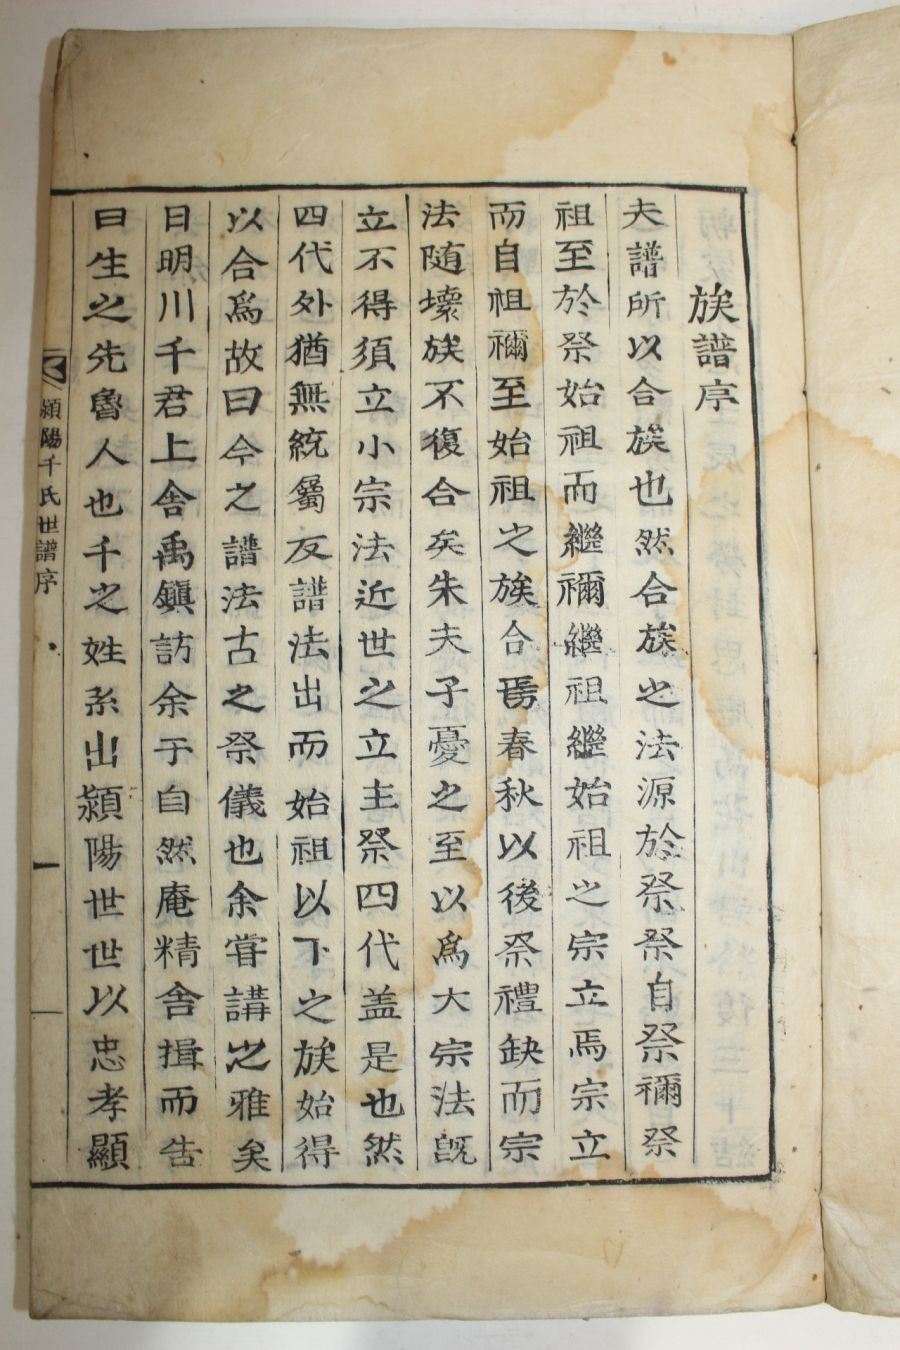 族譜序
夫譜所以合族也然合族之法源於祭祭自祭禰祭
祖至於祭始祖而繼禰繼祖繼始祖之宗立焉宗立
而自祖禰至始祖之族合焉春秋以後祭禮缺而宗
法隨壞族不復合矣朱夫子憂之至以爲大宗法旣
立不得須立小宗法近世之立主祭四代盖是也然
四代外猶無統屬反譜法出而始祖以下之族始得
以合爲故曰今之譜法古之祭儀也余甞講之雅矣
日明川千君上舍禹鎭訪余于自然庵精舍揖而告
曰生之先魯人也千之姓系出潁陽世世以忠孝顯
潁陽千氏世譜序
一